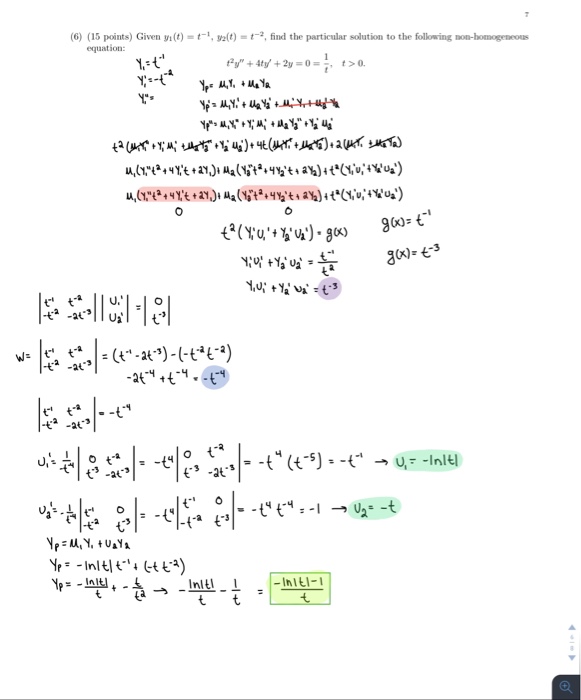 7
(6) (15 points) Given y₁(t) = t⁻¹, y₂(t) = t⁻², find the particular solution to the following non-homogeneous
equation:
t²y″ + 4ty′ + 2y = 0 = 1/t, t > 0.
Y₁ = t⁻¹
Y₁' = -t⁻²
Y₁" =
Yp = u₁Y₁ + u₂Y₂
Yp' = u₁Y₁' + u₂Y₂' + u₁'Y₁ + u₂'Y₂
Yp" = u₁Y₁" + Y₁'u₁' + u₂Y₂" + Y₂'u₂'
t²(u₁Y₁" + Y₁'u₁' + u₂Y₂" + Y₂'u₂') + 4t(u₁Y₁' + u₂Y₂') + 2(u₁Y₁ + u₂Y₂)
u₁(Y₁"t² + 4Y₁'t + 2Y₁) + u₂(Y₂"t² + 4Y₂'t + 2Y₂) + t²(Y₁'u₁' + Y₂'u₂')
u₁(Y₁"t² + 4Y₁'t + 2Y₁) + u₂(Y₂"t² + 4Y₂'t + 2Y₂) + t²(Y₁'u₁' + Y₂'u₂')
0 0
t²(Y₁'u₁' + Y₂'u₂') = g(x) g(x) = t⁻¹
Y₁'u₁' + Y₂'u₂' = t⁻¹/t² g(x) = t⁻³
Y₁u₁' + Y₂'u₂' = t⁻³
|t⁻¹ t⁻²| |u₁'| = |0|
|-t⁻² -2t⁻³| |u₂'| |t⁻³|
W = |t⁻¹ t⁻²| = (t⁻¹ · -2t⁻³) - (-t⁻²t⁻²)
|-t⁻² -2t⁻³| -2t⁻⁴ + t⁻⁴ = -t⁻⁴
|t⁻¹ t⁻²| = -t⁻⁴
|-t⁻² -2t⁻³|
u₁' = 1/-t⁻⁴ |0 t⁻²| = -t⁴ |0 t⁻²| = -t⁴(t⁻⁵) = -t⁻¹ → u₁ = -ln|t|
|t⁻³ -2t⁻³| |t⁻³ -2t⁻³|
u₂' = -1/t⁻⁴ |t⁻¹ 0| = -t⁴ |t⁻¹ 0| = -t⁴t⁻⁴ = -1 → u₂ = -t
|-t⁻² t⁻³| |-t⁻² t⁻³|
Yp = u₁Y₁ + u₂Y₂
Yp = -ln|t| t⁻¹ + (-t t⁻²)
Yp = -ln|t|/t + -t/t² → -ln|t|/t - 1/t = (-ln|t|-1)/t